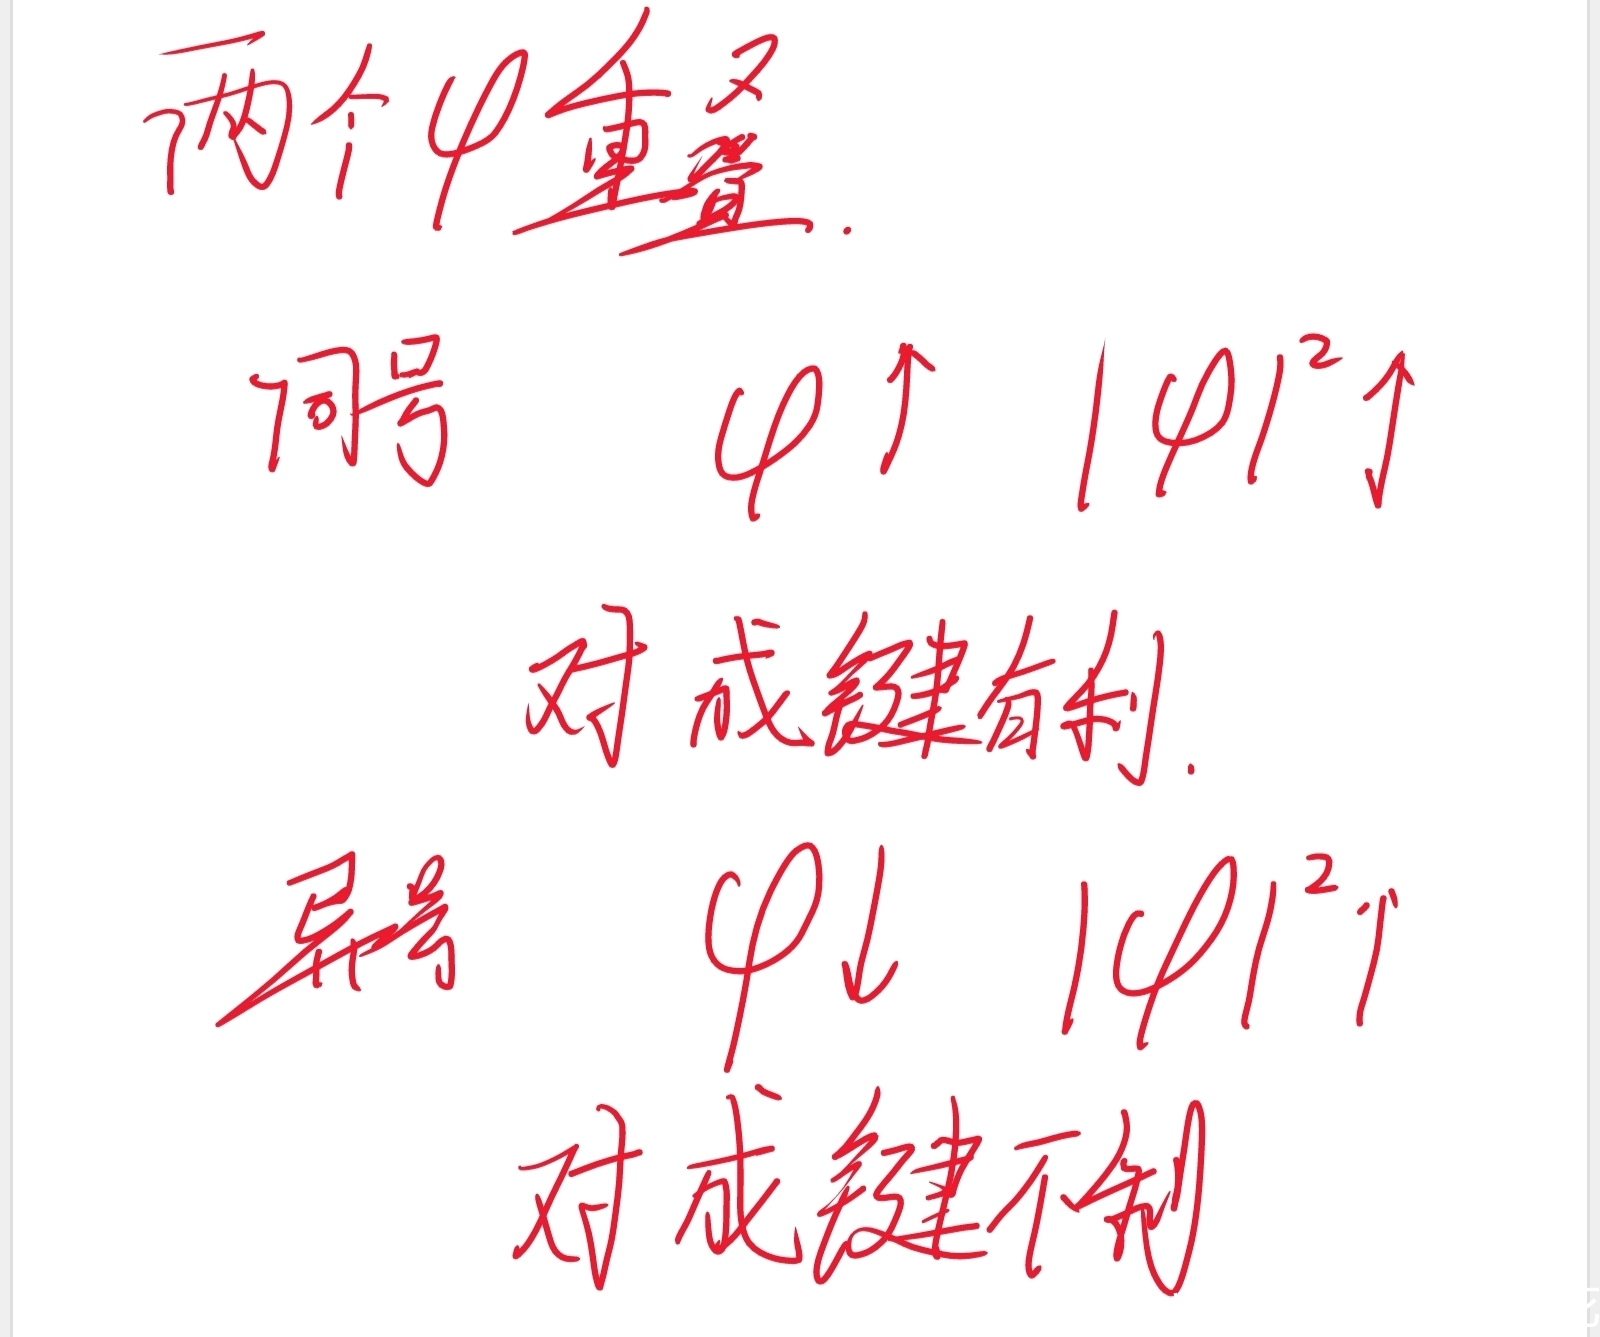 两个φ重叠.
同号 φ↑ |φ|²↕
对成键有利.
异号 φ↓ |φ|²↑
对成键不利